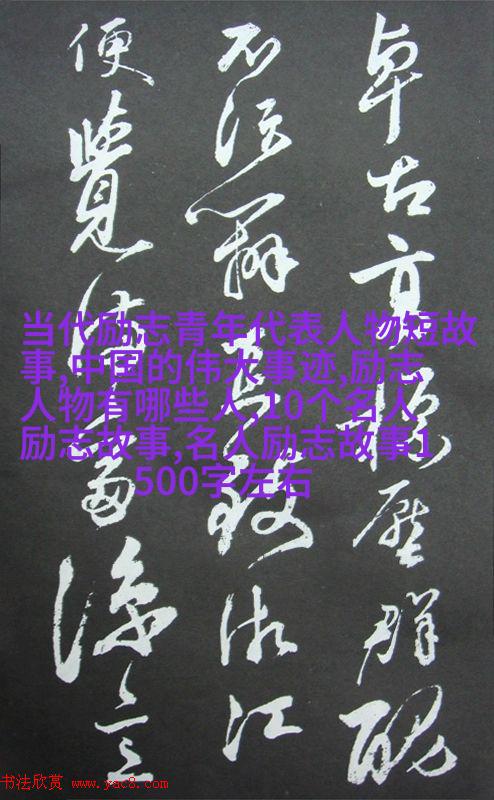 卓古高標壓群
湘江
便覺凉意
当代励志青年代表人物短故
事,中国的伟大事迹,励志
人物有哪些人,10个名人
励志故事,名人励志故事1
500字左右
书法欣赏 www.yac8.com